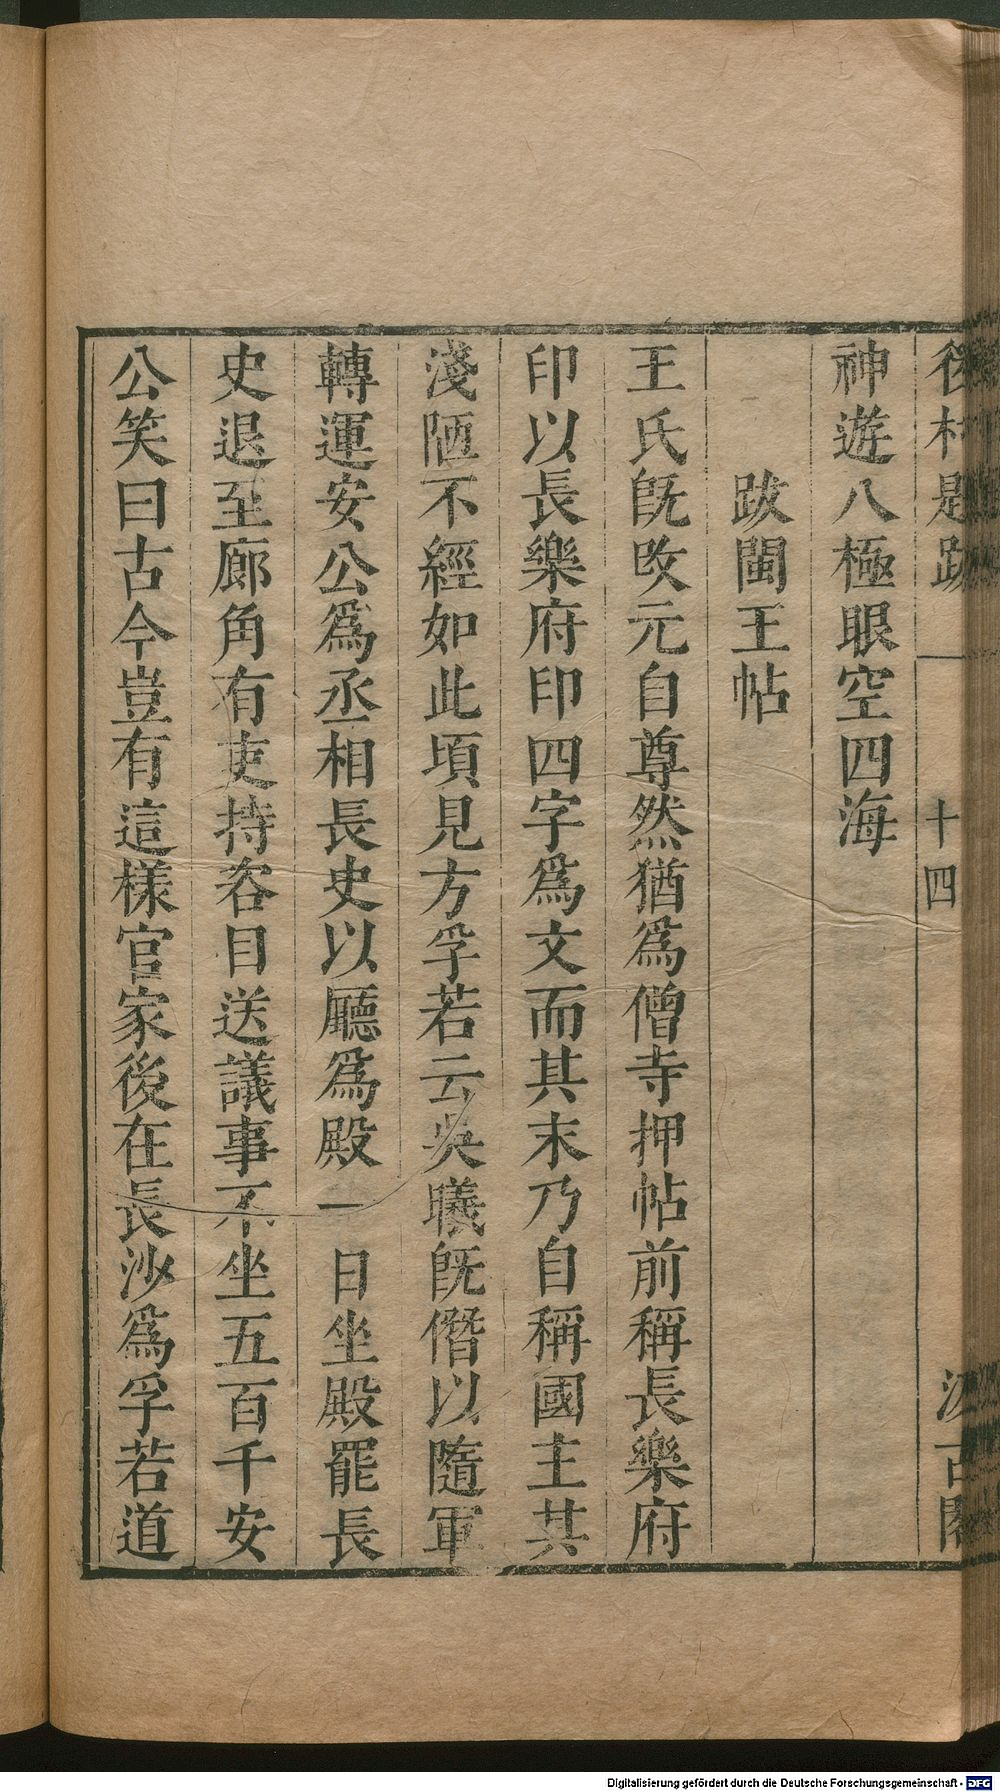 後村題跋 十四 汲古閣
神遊八極眼空四海
跋閩王帖
王氏旣改元自尊然猶爲僧寺押帖前稱長樂府
印以長樂府印四字爲文而其末乃自稱國主其
淺陋不經如此頃見方孚若云吳曦旣僭以隨軍
轉運安公爲丞相長史以廳爲殿一日坐殿罷長
史退至廊角有吏持咨目送議事不坐五百千安
公笑曰古今豈有這樣官家後在長沙爲孚若道
Digitalisierung gefördert durch die Deutsche Forschungsgemeinschaft - DFG